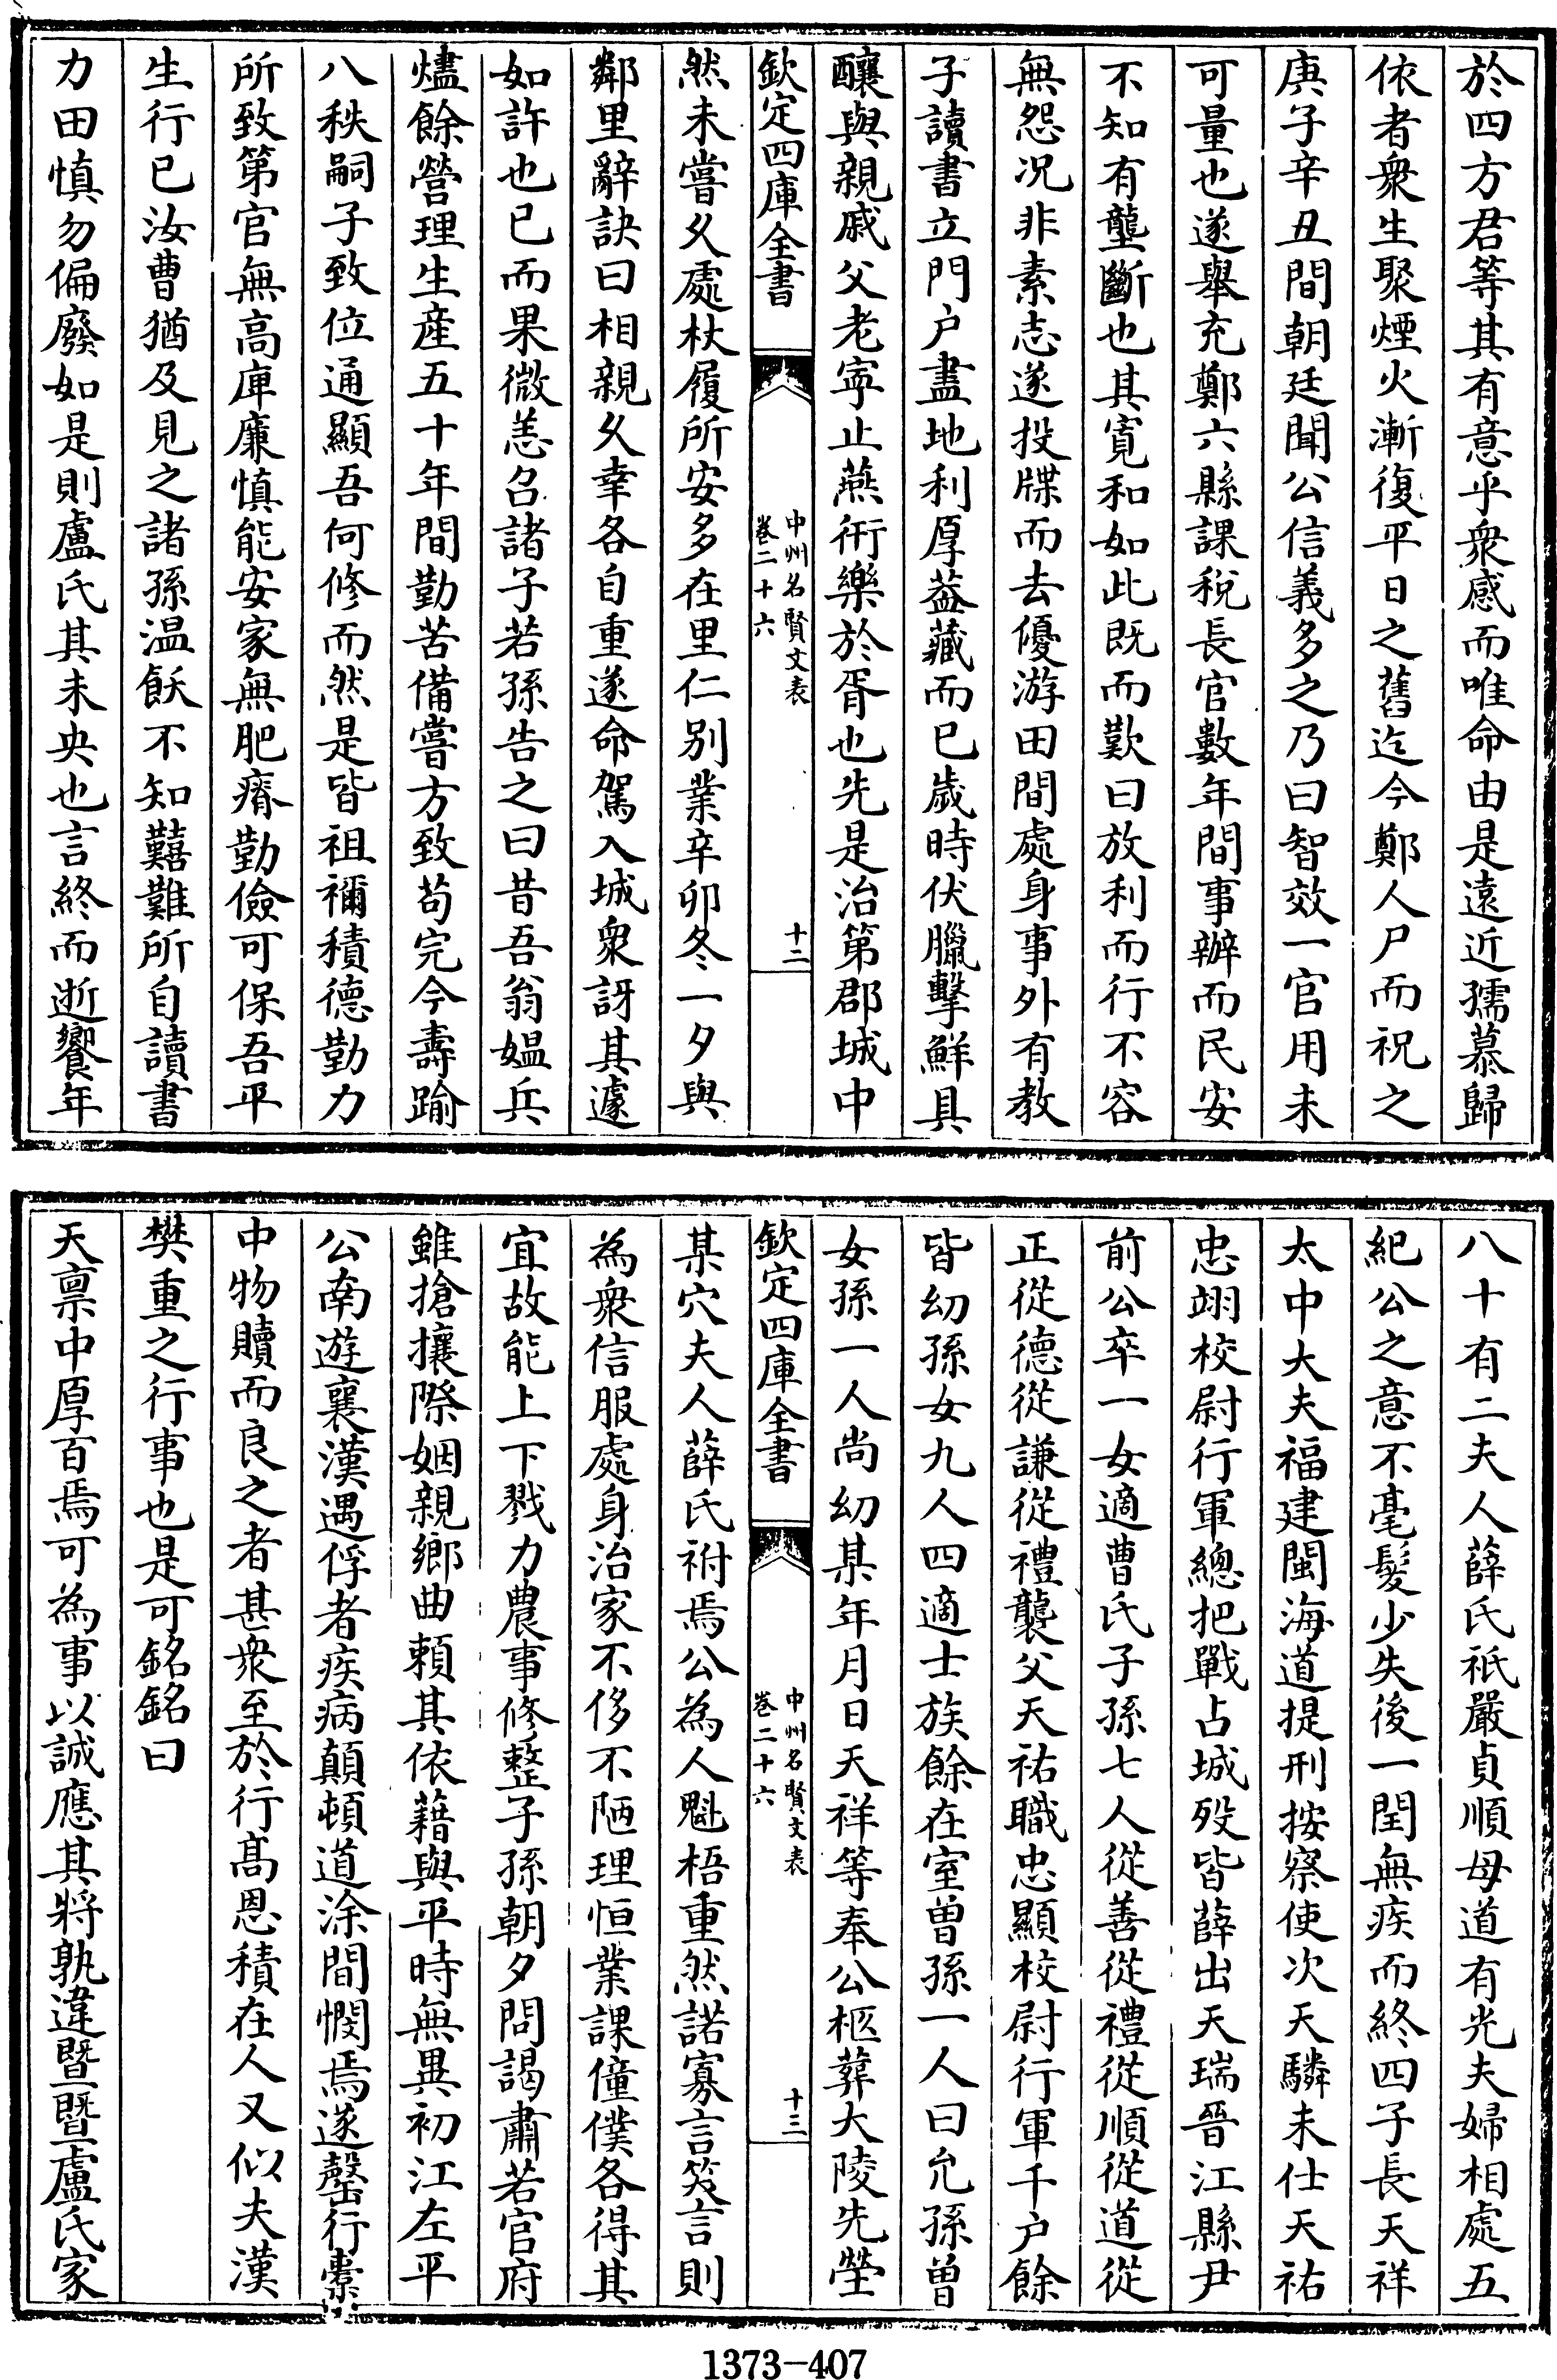 於四方君等其有意乎衆感而唯命由是遠近孺慕歸
依者衆生聚煙火漸復平日之舊迄今鄭人尸而祝之
庚子辛丑間朝廷聞公信義多之乃曰智效一官用未
可量也遂舉充鄭六縣課稅長官數年間事辦而民安
不知有壟斷也其寛和如此既而歎曰放利而行不容
無怨况非素志遂投牒而去優游田間處身事外有教
子讀書立門户盡地利厚葢藏而已歲時伏臘擊鮮具
釀與親戚父老寜止燕衎樂於胥也先是治第郡城中
欽定四庫全書
中州名賢文表
卷二十六
十二
然未嘗乆處杖履所安多在里仁别業辛卯冬一夕與
鄰里辭訣曰相親乆幸各自重遂命駕入城衆訝其遽
如許也已而果微恙召諸子若孫告之曰昔吾翁媪兵
燼餘營理生産五十年間勤苦備嘗方致苟完今壽踰
八秩嗣子致位通顯吾何修而然是皆祖禰積德勤力
所致第官無高庳廉慎能安家無肥瘠勤儉可保吾平
生行已汝曹猶及見之諸孫温飫不知囏難所自讀書
力田慎勿偏廢如是則盧氏其未央也言終而逝饗年
八十有二夫人薛氏祇嚴貞順母道有光夫婦相處五
紀公之意不毫髪少失後一閏無疾而終四子長天祥
太中大夫福建閩海道提刑按察使次天驎未仕天祐
忠翊校尉行軍總把戰占城殁皆薛出天瑞晉江縣尹
前公卒一女適曹氏子孫七人從善從禮從順從道從
正從德從謙從禮襲父天祐職忠顯校尉行軍千户餘
皆幼孫女九人四適士族餘在室曾孫一人曰允孫曾
女孫一人尚幼某年月日天祥等奉公柩葬大陵先塋
欽定四庫全書
中州名賢文表
卷二十六
十三
某穴夫人薛氏祔焉公為人魁梧重然諾寡言笑言則
為衆信服處身治家不侈不陋理恒業課僮僕各得其
宜故能上下戮力農事修整子孫朝夕問謁肅若官府
雖搶攘際姻親鄉曲頼其依藉與平時無異初江左平
公南遊襄漢遇俘者疾病顛頓道涂間憫焉遂罄行橐
中物贖而良之者甚衆至於行髙恩積在人又似夫漢
樊重之行事也是可銘銘曰
天禀中厚百焉可為事以誠應其將孰違暨暨盧氏家
1373-407